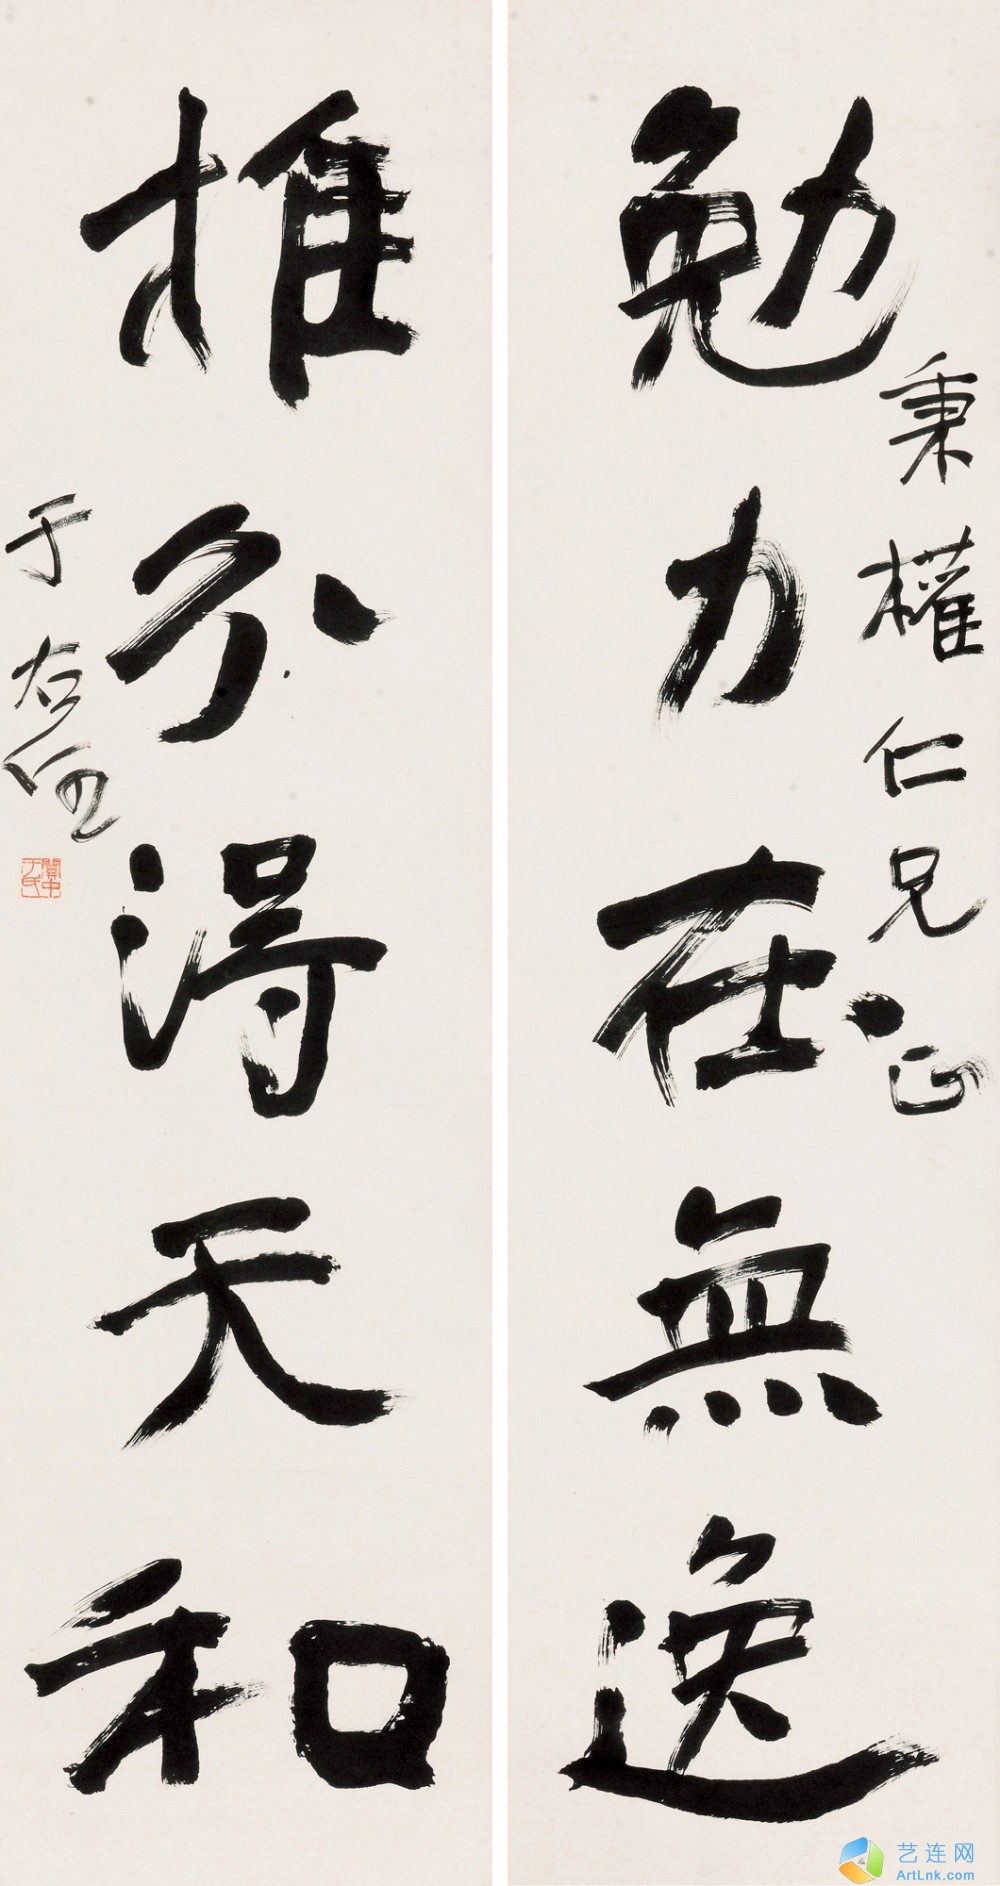 秉權仁兄正
勉力在無逸
推分得天和
于右任
關中于氏
艺连网
ArtLnk.com